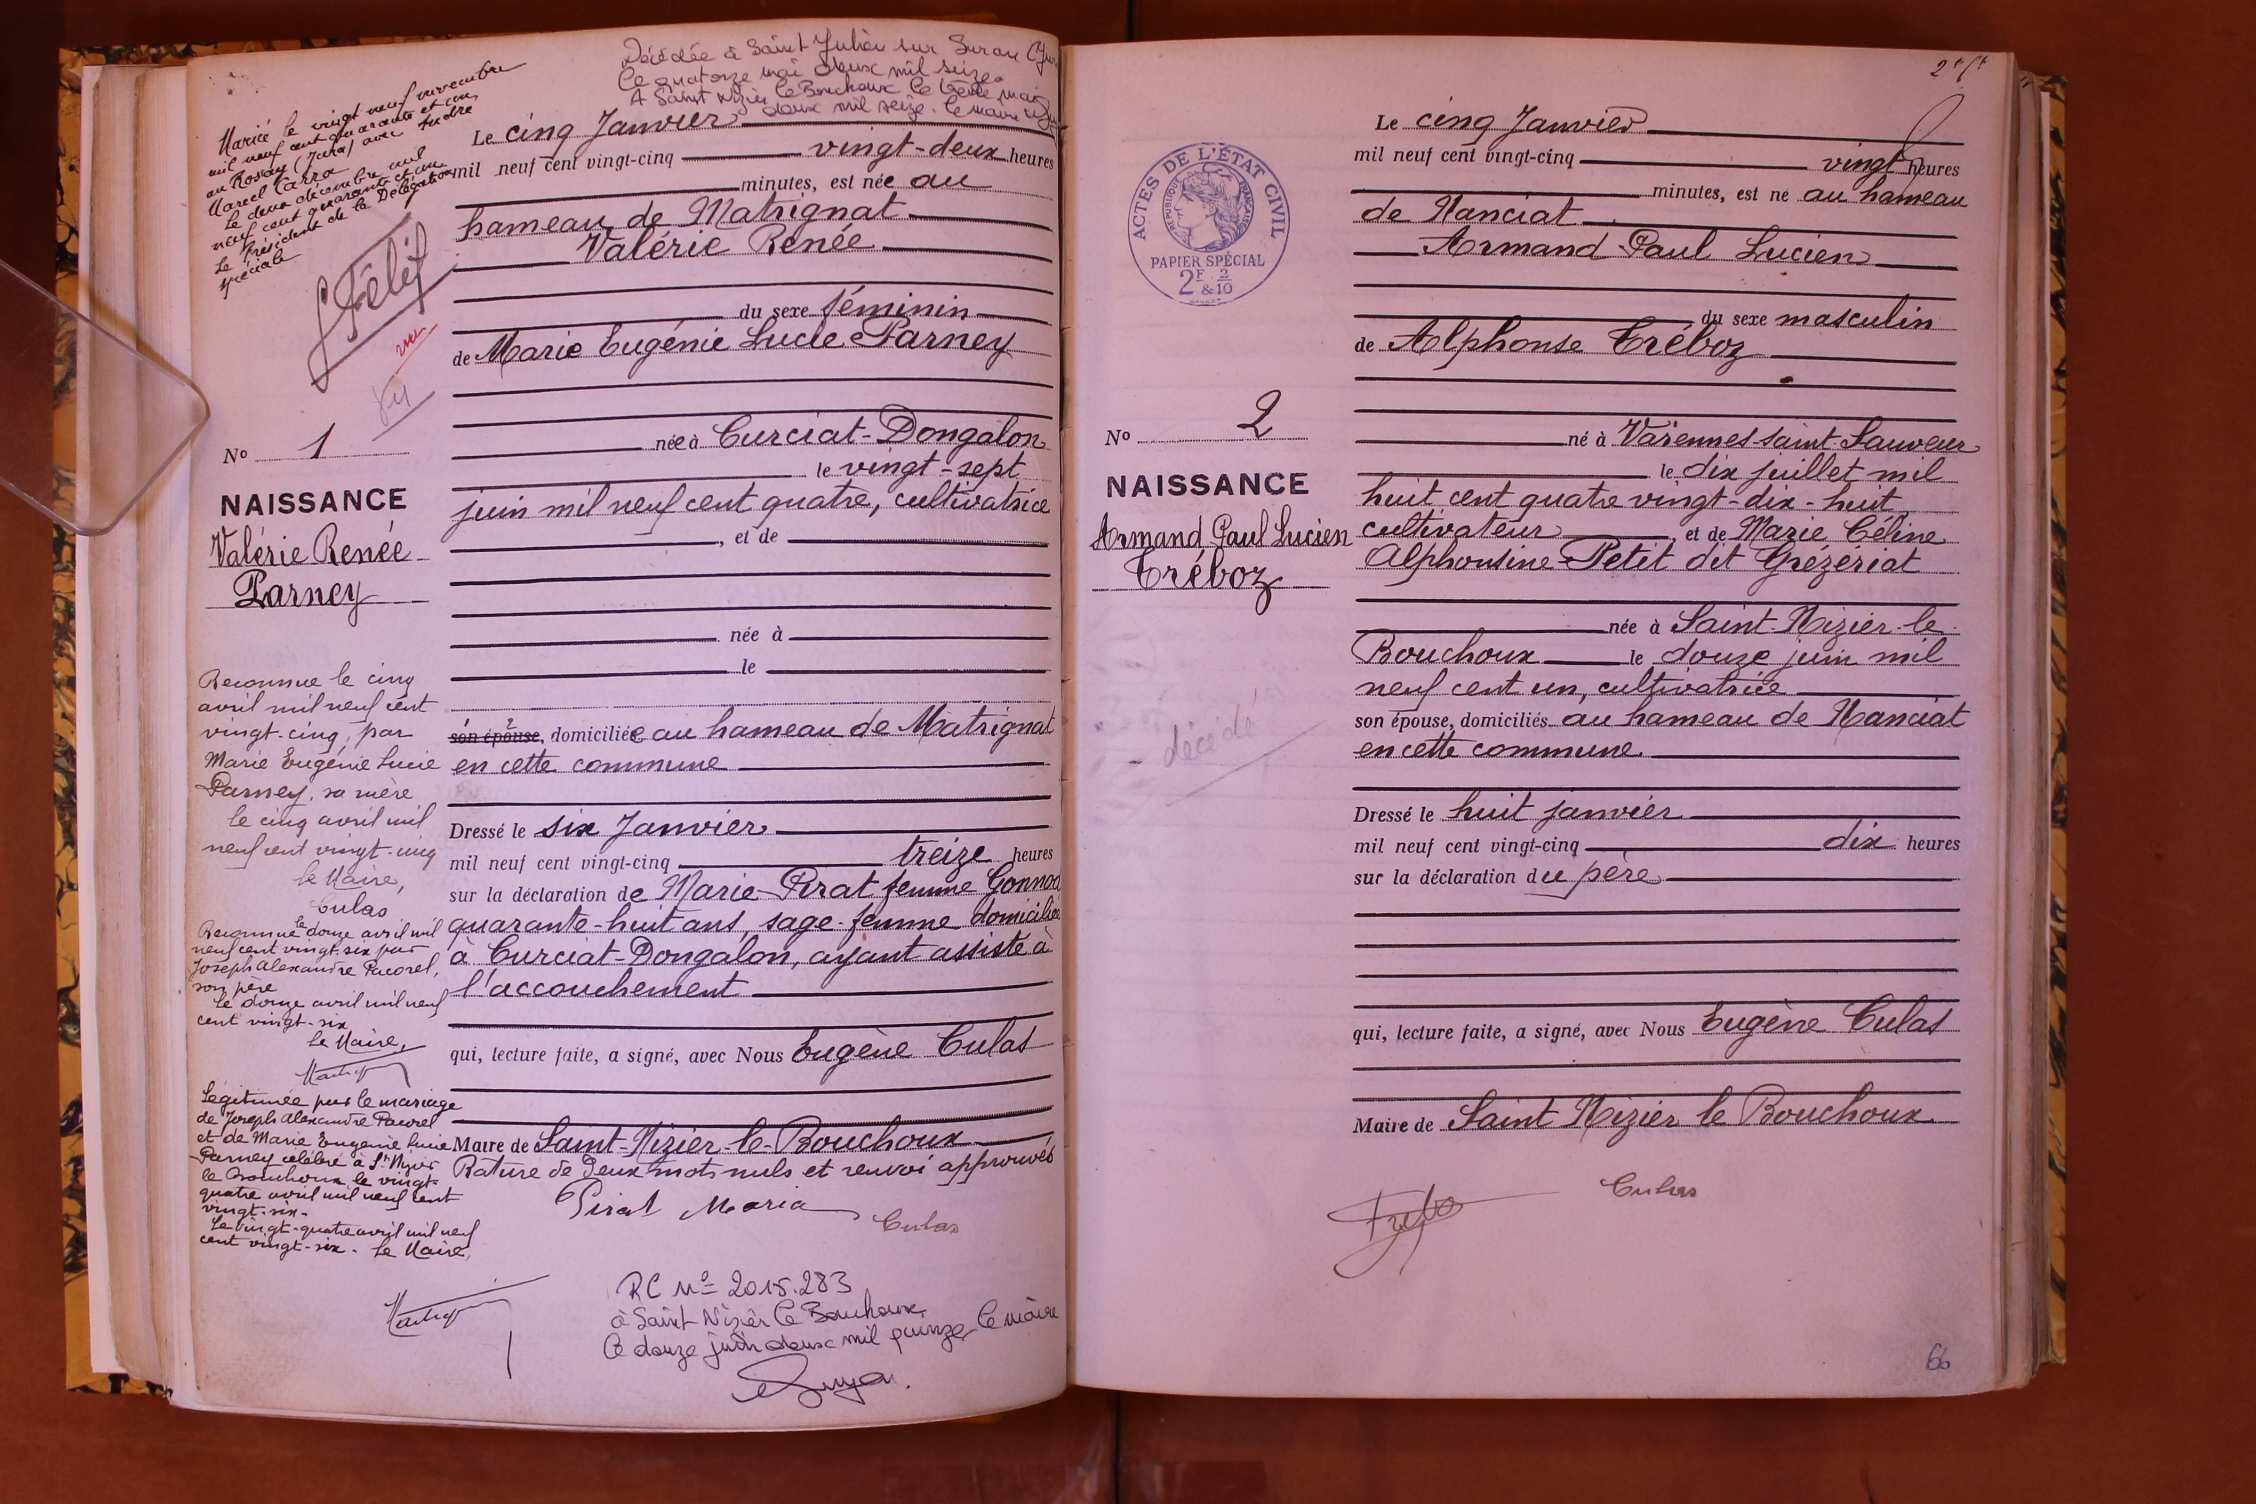 Décédée à Saint Julien sur Suran
Le quatorze mai deux mil seize
A Saint Nizier le Bouchoux le
deux mil seize. le maire
Mariée le vingt neuf novembre
mil neuf cent quarante et un
au Rosay (Jura) avec André
Marcel Carra
Le deux décembre mil
neuf cent quarante et un
Le Président de la Délégation
spéciale
vu
N° 1
NAISSANCE
Valérie Renée
Parney
Reconnue le cinq
avril mil neuf cent
vingt-cinq, par
Marie Eugénie Lucie
Parney, sa mère
le cinq avril mil
neuf cent vingt-cinq
le Maire,
Culas
Reconnue le douze avril mil
neuf cent vingt-six par
Joseph Alexandre Pacorel,
son père
le douze avril mil neuf
cent vingt-six
le Maire,
Légitimée par le mariage
de Joseph Alexandre Pacorel
et de Marie Eugénie Lucie
Parney célébré à St Nizier
le Bouchoux le vingt-
quatre avril mil neuf cent
vingt-six -
Le vingt-quatre avril mil neuf
cent vingt-six - Le Maire,
Le cinq Janvier
mil neuf cent vingt-cinq vingt-deux heures
minutes, est née au
hameau de Matrignat
Valérie Renée
du sexe féminin
de Marie Eugénie Lucie Parney
née à Curciat-Dongalon
le vingt-sept
juin mil neuf cent quatre, cultivatrice
, et de
née à
le
son épouse, domiciliée au hameau de Matrignat
en cette commune
Dressé le six Janvier
mil neuf cent vingt-cinq treize heures
sur la déclaration de Marie Pirat femme Gonnod
quarante-huit ans, sage-femme domiciliée
à Curciat-Dongalon, ayant assisté à
l'accouchement
qui, lecture faite, a signé, avec Nous Eugène Culas
Maire de Saint-Nizier-le-Bouchoux
Rature de deux mots nuls et renvoi approuvés
Pirat Maria Culas
RC N° 2015.283
à Saint Nizier le Bouchoux,
le douze juin deux mil quinze le maire
ACTES DE L'ÉTAT CIVIL
RÉPUBLIQUE FRANÇAISE
PAPIER SPÉCIAL
2F & 2/10
N° 2
NAISSANCE
Armand Paul Lucien
Tréboz
décédé
Le cinq Janvier
mil neuf cent vingt-cinq vingt heures
minutes, est né au hameau
de Nanciat
Armand Paul Lucien
du sexe masculin
de Alphonse Tréboz
né à Varennes-saint-Sauveur
le dix juillet mil
huit cent quatre vingt-dix-huit
cultivateur, et de Marie Céline
Alphonsine Petit dit Grézériat
née à Saint-Nizier-le
Bouchoux le douze juin mil
neuf cent un, cultivatrice
son épouse, domiciliés au hameau de Nanciat
en cette commune
Dressé le huit janvier
mil neuf cent vingt-cinq dix heures
sur la déclaration du père
qui, lecture faite, a signé, avec Nous Eugène Culas
Maire de Saint Nizier le Bouchoux
Culas
66